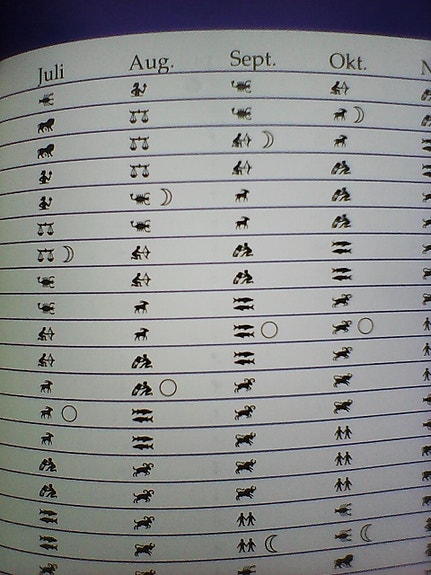 Juli Aug. Sept. Okt. N